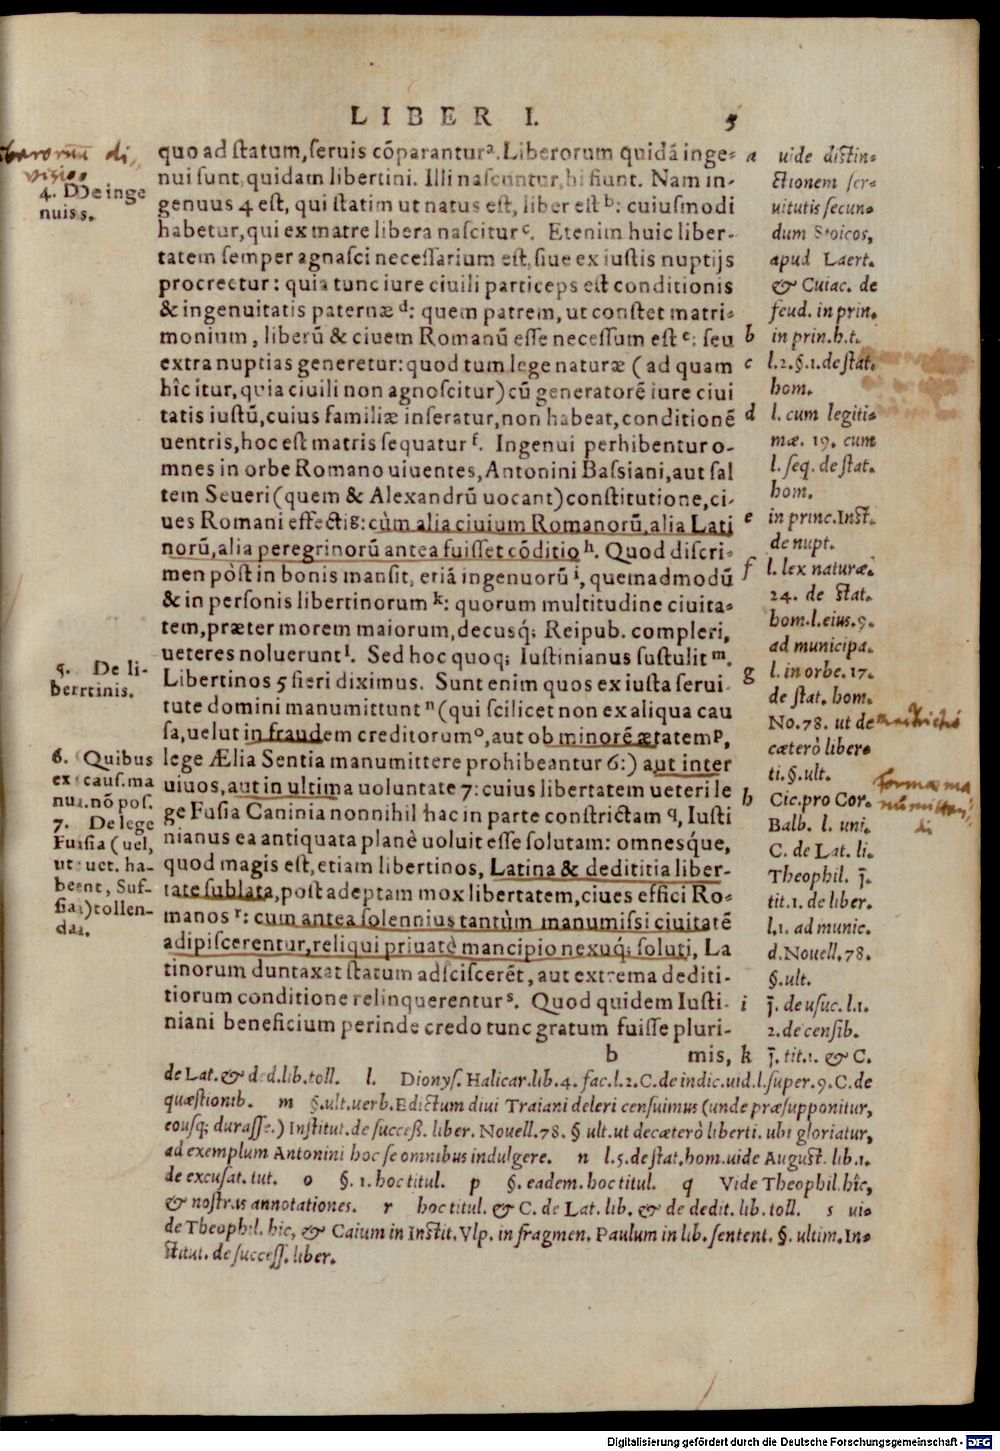 LIBER I. 5
quo ad statum, seruis cōparantur a. Liberorum quidā inge-
nui sunt, quidam libertini. Illi nascuntur, hi fiunt. Nam in-
genuus 4 est, qui statim ut natus est, liber est b: cuiusmodi
habetur, qui ex matre libera nascitur c. Etenim huic liber-
tatem semper agnasci necessarium est, siue ex iustis nuptijs
procreetur: quia tunc iure ciuili particeps est conditionis
& ingenuitatis paternæ d: quem patrem, ut constet matri-
monium, liberū & ciuem Romanū esse necessum est e: seu
extra nuptias generetur: quod tum lege naturæ (ad quam
hîc itur, quia ciuili non agnoscitur) cū generatorē iure ciui
tatis iustū, cuius familiæ inseratur, non habeat, conditionē
uentris, hoc est matris sequatur f. Ingenui perhibentur o-
mnes in orbe Romano uiuentes, Antonini Bassiani, aut sal
tem Seueri (quem & Alexandrū uocant) constitutione, ci-
ues Romani effecti g: cùm alia ciuium Romanorū, alia Lati
norū, alia peregrinorū antea fuisset cōditio h. Quod discri-
men pòst in bonis mansit, etiā ingenuorū i, quemadmodū
& in personis libertinorum k: quorum multitudine ciuita-
tem, præter morem maiorum, decusq; Reipub. compleri,
ueteres noluerunt l. Sed hoc quoq; Iustinianus sustulit m.
Libertinos 5 fieri diximus. Sunt enim quos ex iusta serui-
tute domini manumittunt n (qui scilicet non ex aliqua cau
sa, uelut in fraudem creditorum o, aut ob minorē ætatem p,
lege Ælia Sentia manumittere prohibeantur 6:) aut inter
uiuos, aut in ultima uoluntate 7: cuius libertatem ueteri le
ge Fusia Caninia nonnihil hac in parte constrictam q, Iusti
nianus ea antiquata planè uoluit esse solutam: omnesque,
quod magis est, etiam libertinos, Latina & dedititia liber-
tate sublata, post adeptam mox libertatem, ciues effici Ro-
manos r: cum antea solennius tantùm manumissi ciuitatē
adipiscerentur, reliqui priuatè mancipio nexuq; soluti, La
tinorum duntaxat statum adsciscerēt, aut extrema dediti-
tiorum conditione relinquerentur s. Quod quidem Iusti-
niani beneficium perinde credo tunc gratum fuisse pluri-
b mis,
berorum di,
visio
4. De inge
nuis s.
5. De li-
bertinis.
6. Quibus
ex caus. ma
nu. nō pos.
7. De lege
Fusia (uel,
ut uet. ha-
bent, Suf-
fia) tollen-
da.
a uide distin-
ctionem ser-
uitutis secun-
dum Stoicos,
apud Laert.
& Cuiac. de
feud. in prin.
b in prin. h. t.
c l. 2. §. 1. de stat.
hom.
d l. cum legiti-
mæ. 19. cum
l. seq. de stat.
hom.
e in princ. Inst.
de nupt.
f l. lex naturæ.
24. de stat.
hom. l. eius. 9.
ad municipa.
g l. in orbe. 17.
de stat. hom.
No. 78. ut de
cæterò liber-
ti. §. ult.
h Cic. pro Cor.
Balb. l. uni.
C. de Lat. li.
Theophil. j.
tit. 1. de liber.
l. 1. ad munic.
d. Nouell. 78.
§. ult.
i j. de usuc. l. 1.
2. de censib.
k j. tit. 1. & C.
formæ ma
numitten,
di
de Lat. & ded. lib. toll. l. Dionys. Halicar. lib. 4. fac. l. 2. C. de indic. uid. l. super. 9. C. de
quæstionib. m §. ult. uerb. Edictum diui Traiani deleri censuimus (unde præsupponitur,
eousq; durasse.) Institut. de success. liber. Nouell. 78. § ult. ut decæterò liberti. ubi gloriatur,
ad exemplum Antonini hoc se omnibus indulgere. n l. 5. de stat. hom. uide August. lib. 1.
de excusat. tut. o §. 1. hoc titul. p §. eadem. hoc titul. q Vide Theophil. hîc,
& nostras annotationes. r hoc titul. & C. de Lat. lib. & de dedit. lib. toll. s ui-
de Theophil. hic, & Caium in Instit. Vlp. in fragmen. Paulum in lib. sentent. §. ultim. In-
stitut. de success. liber.
Digitalisierung gefördert durch die Deutsche Forschungsgemeinschaft - DFG